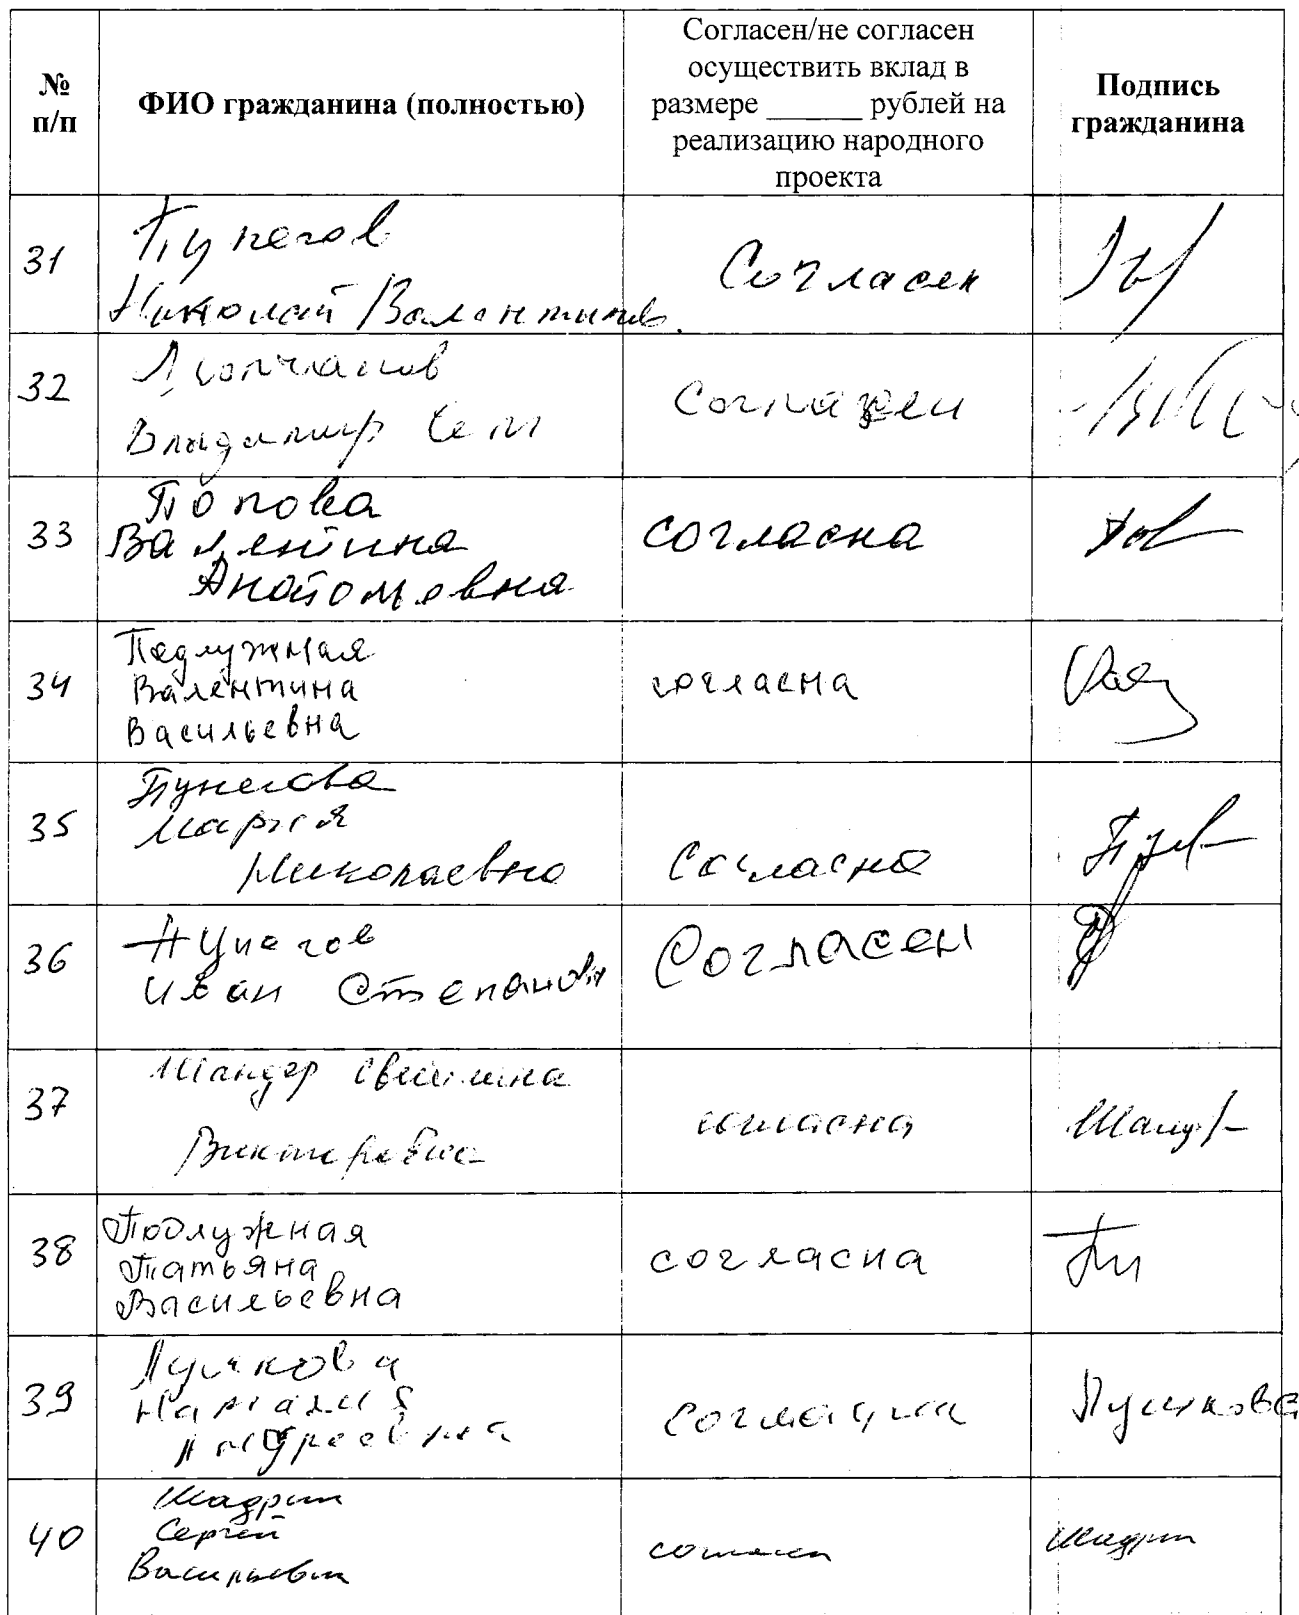 № п/п
ФИО гражданина (полностью)
Согласен/не согласен
осуществить вклад в
размере ______ рублей на
реализацию народного
проекта
Подпись
гражданина
31
Пунегов
Николай Валентинов.
Согласен
32
Владимир
Согласен
33
Попова
Валентина
Анатольевна
согласна
34
Подлужная
Валентина
Васильевна
согласна
35
Пунегова
Мария
Николаевна
Согласна
36
Пунегов
Иван Степанович
Согласен
37
Шандер Светлана
Викторовна
согласна
38
Подлужная
Татьяна
Васильевна
согласна
39
Пушкова
Наталия
Андреевна
согласна
Пушкова
40
Шадрин
Сергей
Васильевич
согласен
Шадрин